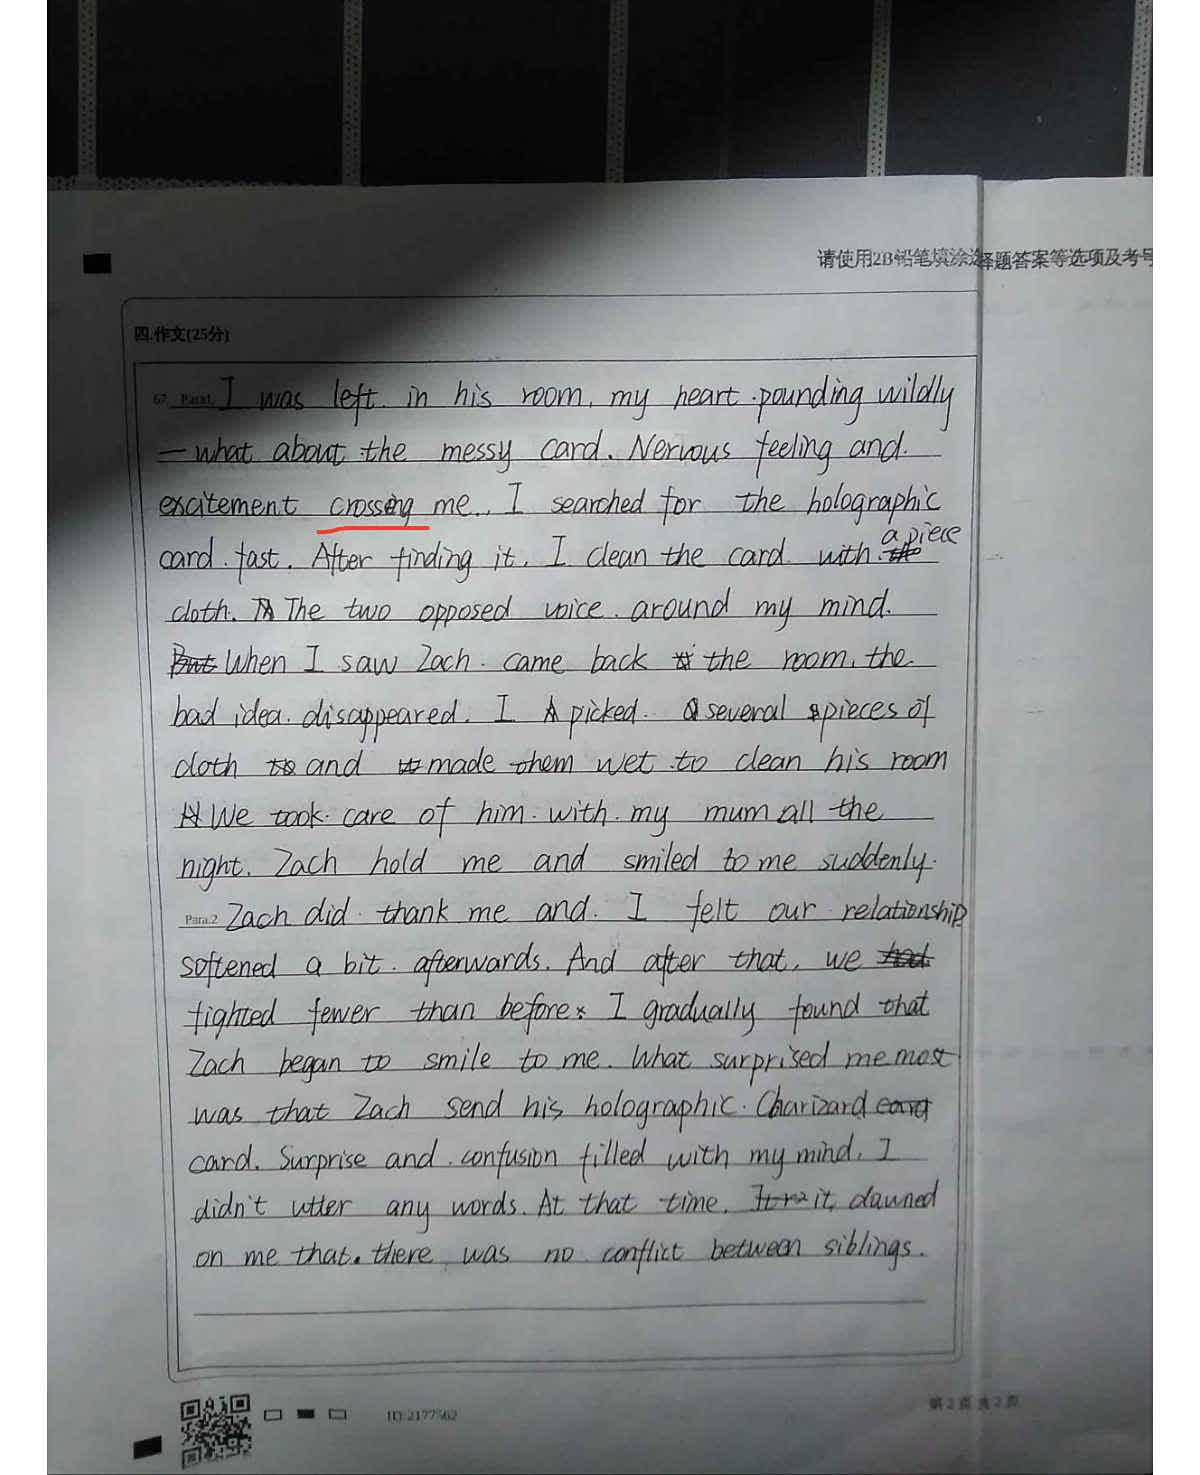 请使用2B铅笔填涂选择题答案等选项及考号
四.作文(25分)
67. Para1. I was left in his room, my heart pounding wildly
— what about the messy card. Nervous feeling and
excitement crossing me. I searched for the holographic
card fast. After finding it, I clean the card with a piece
cloth. The two opposed voice around my mind.
When I saw Zach came back the room, the
bad idea disappeared. I picked several pieces of
cloth and made them wet to clean his room
We took care of him with my mum all the
night. Zach hold me and smiled to me suddenly.
Para.2 Zach did thank me and I felt our relationship
softened a bit afterwards. And after that, we
fighted fewer than before. I gradually found that
Zach began to smile to me. What surprised me most
was that Zach send his holographic Charizard
card. Surprise and confusion filled with my mind. I
didn't utter any words. At that time, it dawned
on me that there was no conflict between siblings.
第2页 共2页
ID:2177562